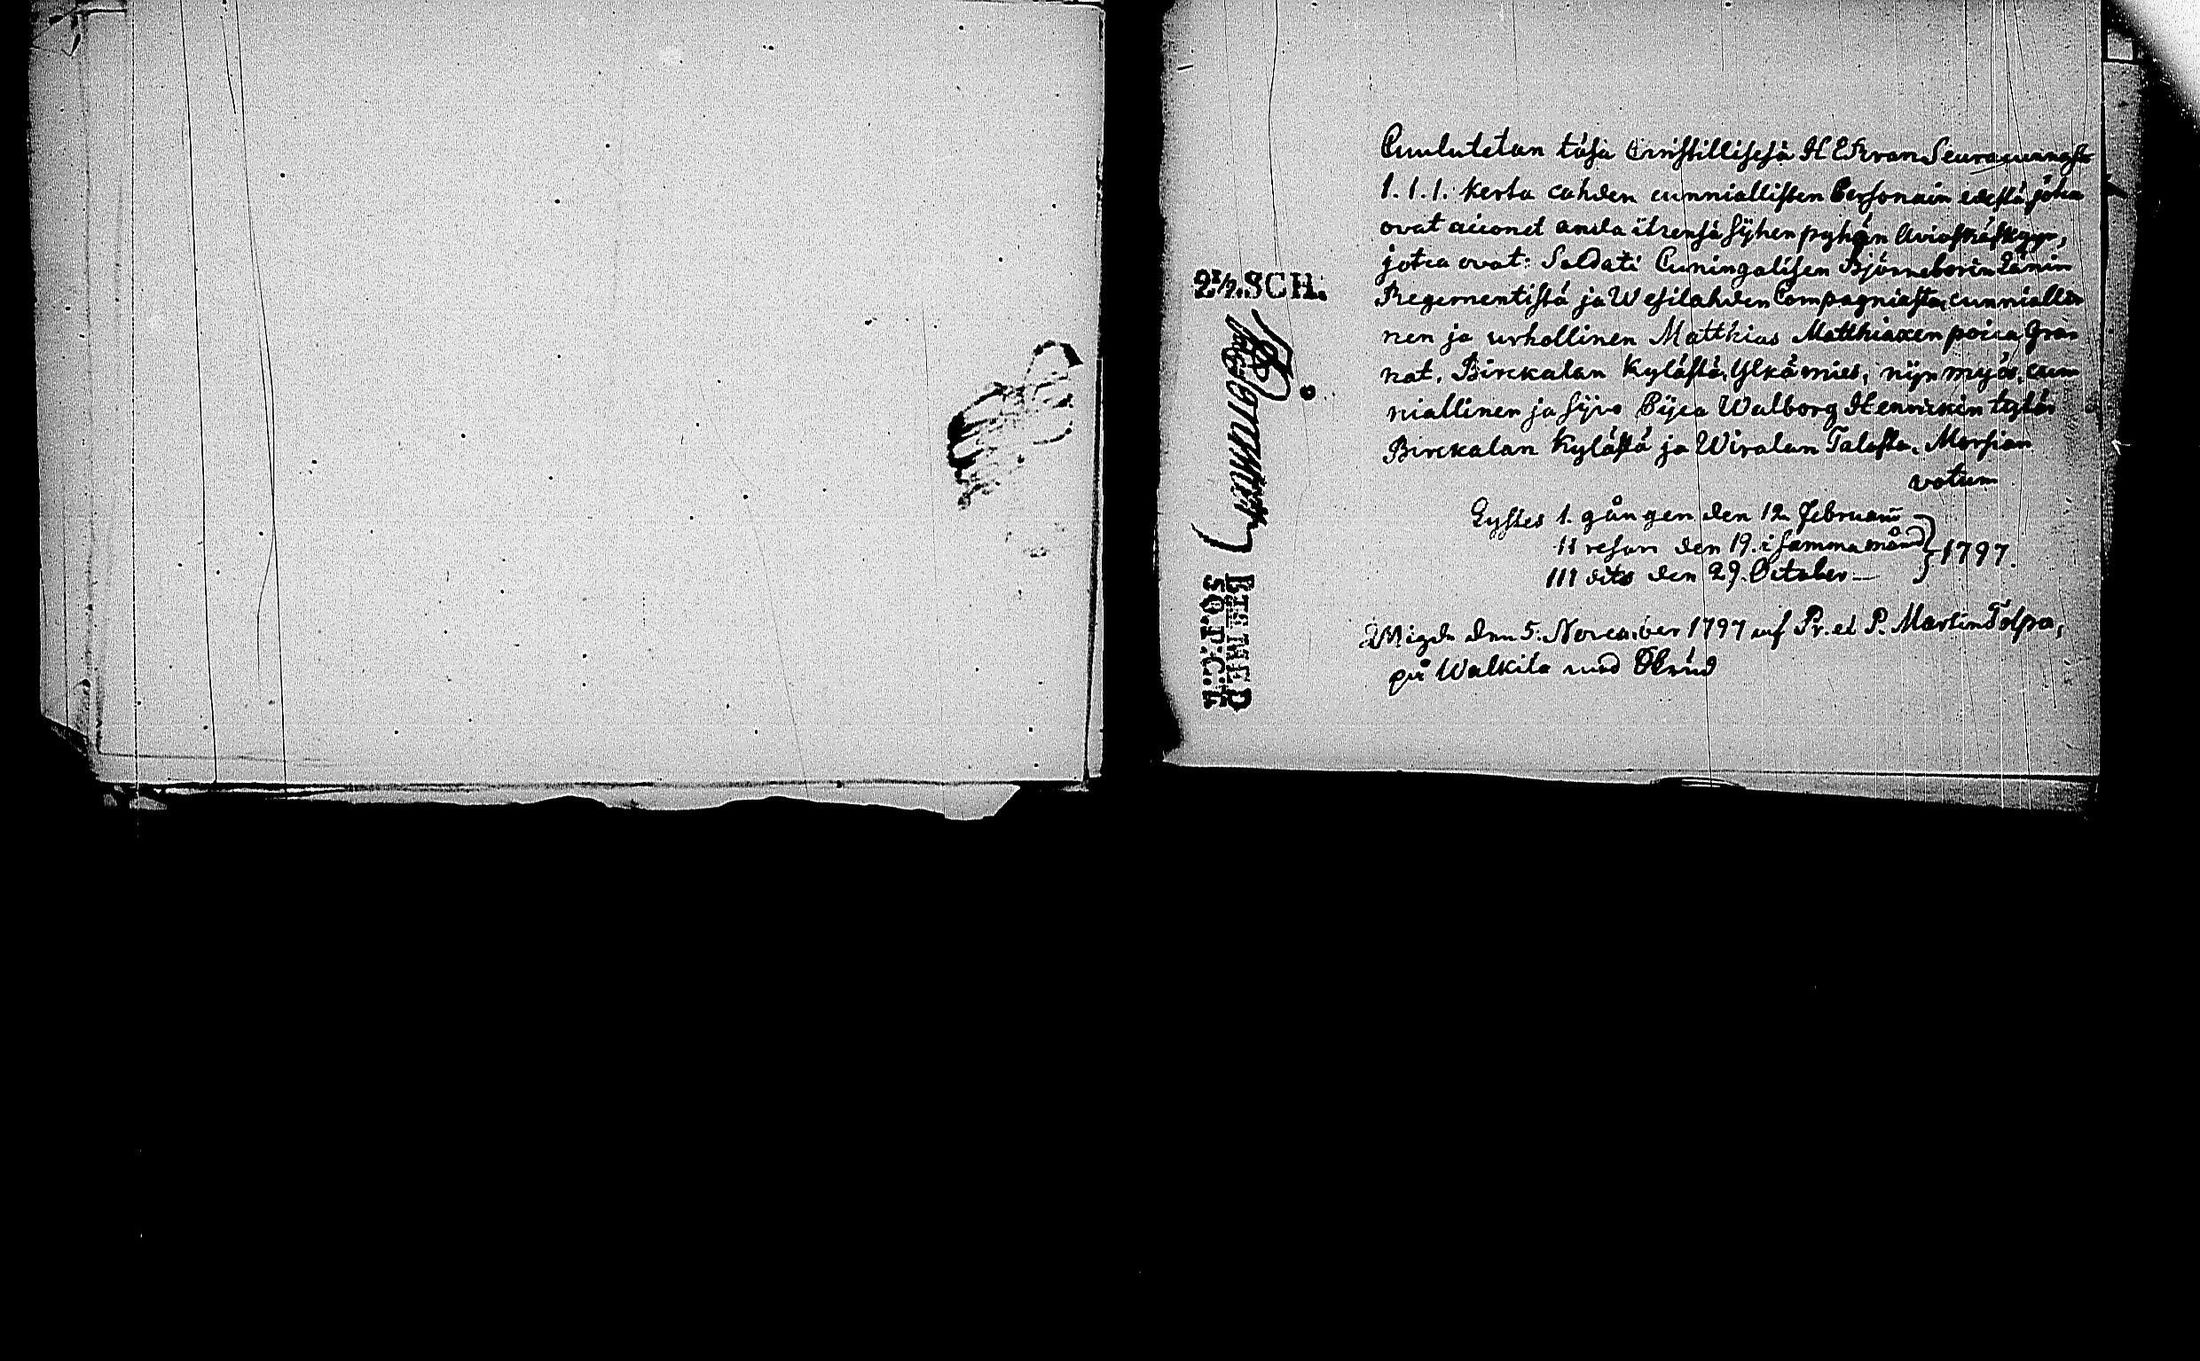 2½.SCH.
BTS.MED
SQ.P.C:L
Cuulutetan täsä Cristillisesä HERran Seuracunnasa
1.1.1. kerta cahden cunniallisten Personain edestä, jotca
ovat aiconet anda itzensä syhen pyhän Aviokäskyyn,
jotca ovat: Soldati Cuningalisen Björneborin Länin
Regementistä ja Wesilahden Compagniasta, cunnialli-
nen ja urhollinen Matthias Matthiaxen poica Gra-
nat, Birckalan Kylästä, Ylkä mies, nijn myös, cun-
niallinen ja sijvo Pijca Walborg Hennrikin tytär
Birckalan Kylästä ja Wiralan Talosta, Morsian
votum
Lystes 1. gången den 12 Februarii
11 resan den 19. i samma månd
111 dito den 29. October
1797.
Wigde den 5. November 1797 af Pr. et P. Martin Tolpo,
på Walkila wid